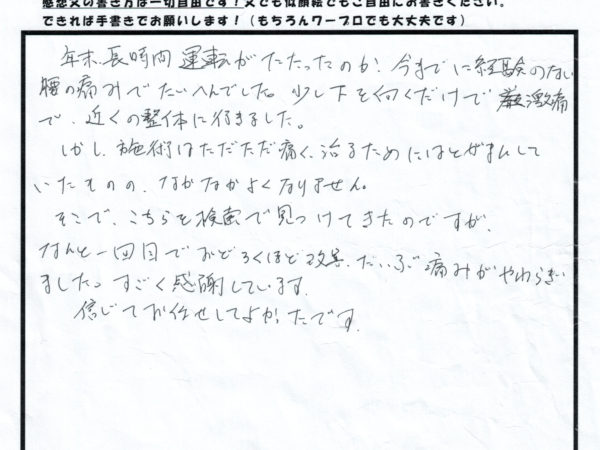 感想文の書き方は一切自由です！文でも似顔絵でもご自由にお書きください。
できれば手書きでお願いします！（もちろんワープロでも大丈夫です）
年末、長時間運転がたたったのか、今までに経験のない
腰の痛みでたいへんでした。少し下を向くだけで激痛
で、近くの整体に行きました。
しかし、施術はただただ痛く、治るためにはとがまんして
いたものの、なかなかよくなりません。
そこで、こちらを検索で見つけてきたのですが、
なんと一回目でおどろくほど改善、だいぶ痛みがやわらぎ
ました。すごく感謝しています。
信じてお任せしてよかったです。